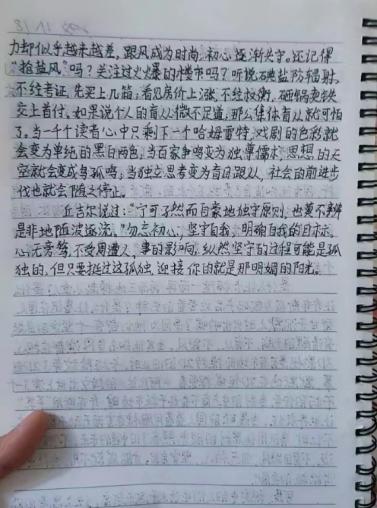 力却似乎越来越差，跟风成为时尚，初心逐渐失守。还记得
"抢盐风"吗？关注过火爆的楼市吗？听说碘盐防辐射，
不经考证，先买上几箱；看见房价上涨，不经权衡，砸锅卖铁
交上首付。如果说个人的盲从微不足道，那么集体盲从就可怕
了。当一千个读者心中只剩下一个哈姆雷特，戏剧的色彩就
会变为单纯的黑白两色；当百家争鸣变为独尊儒术，思想的天
空就会变成孤鸣；当独立思考变为盲目跟从，社会的前进步
伐也就会随之停止。
丘吉尔说过："宁可孑然而自豪地独守原则，也莫不辨
是非地随波逐流。"勿忘初心，坚守自我，明确自我的目标，
心无旁骛，不受周遭人，事的影响。纵然坚守的过程可能是孤
独的，但只要挺过这孤独，迎接你的就是那明媚的阳光。